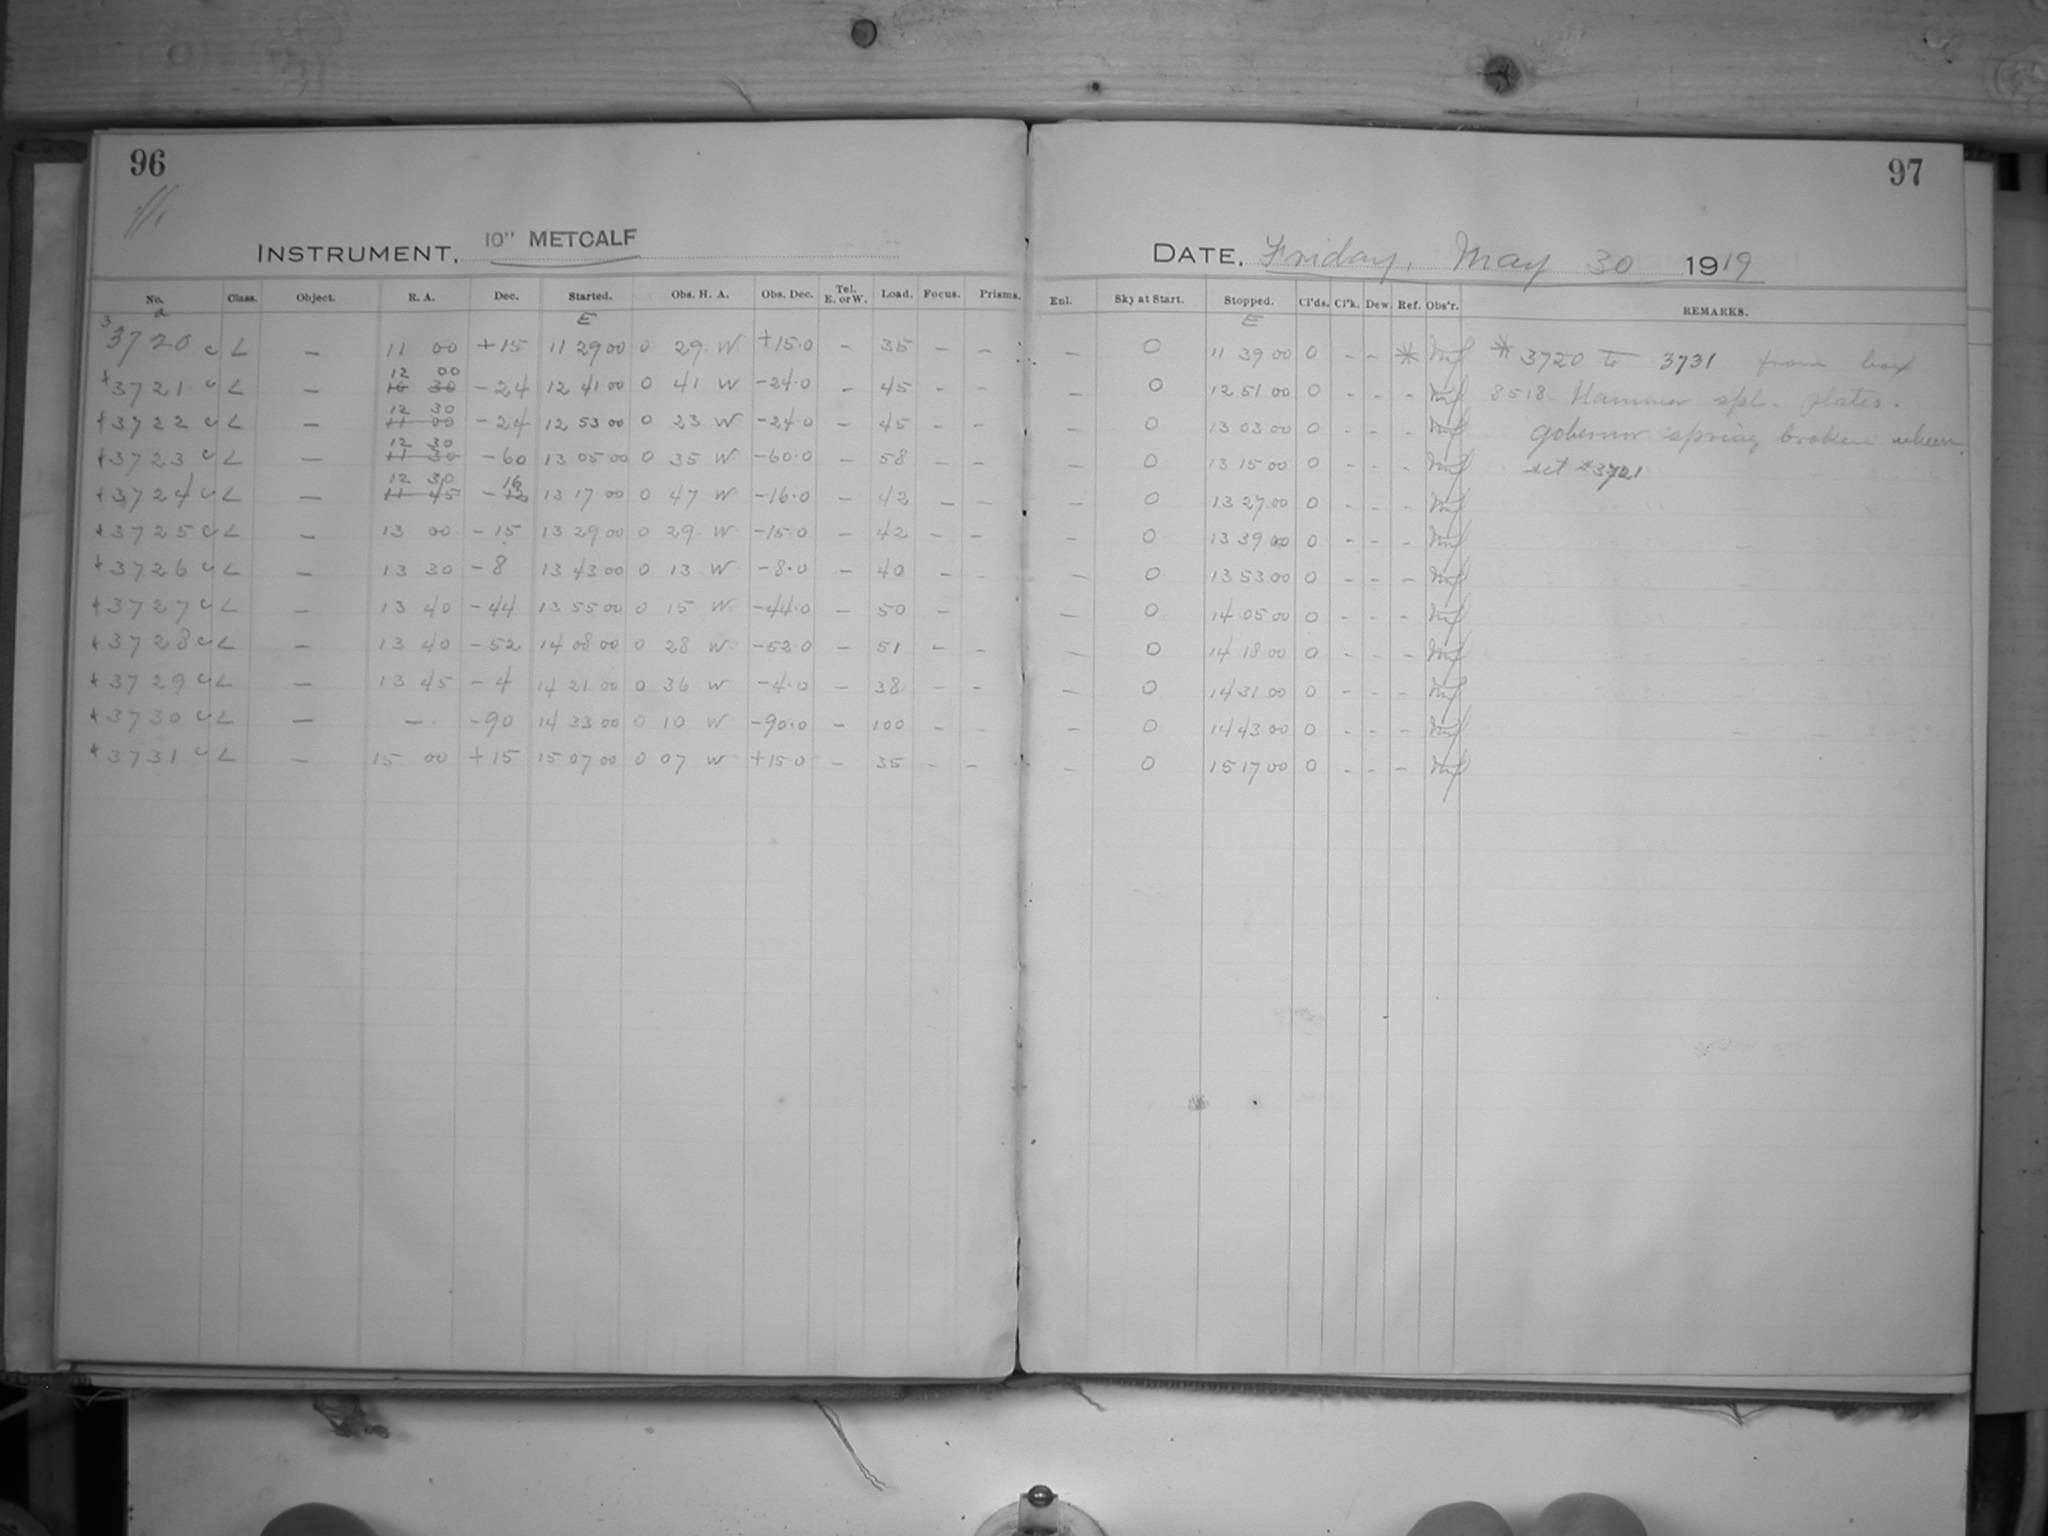 96
INSTRUMENT, 10" METCALF
No. Class. Object. R. A. Dec. Started. Obs. H. A. Obs. Dec. Tel. E. or W. Load. Focus. Prisms.
a E
3
3720 c L — 11 00 +15 11 29 00 0 29 W +15.0 – 35 – –
12 00
3721 c L — 10 30 -24 12 41 00 0 41 W -24.0 – 45 – –
12 30
3722 c L — 11 00 -24 12 53 00 0 23 W -24.0 – 45 – –
12 30
3723 c L — 11 30 -60 13 05 00 0 35 W -60.0 – 58 – –
12 30 16
3724 c L — 11 45 - 13 17 00 0 47 W -16.0 – 42 – –
3725 c L — 13 00 -15 13 29 00 0 29 W -15.0 – 42 – –
3726 c L — 13 30 -8 13 43 00 0 13 W -8.0 – 40 – –
3727 c L — 13 40 -44 13 55 00 0 15 W -44.0 – 50 –
3728 c L — 13 40 -52 14 08 00 0 28 W -52.0 – 51 – –
3729 c L — 13 45 -4 14 21 00 0 36 W -4.0 – 38 – –
3730 c L — – -90 14 33 00 0 10 W -90.0 – 100 – –
3731 c L — 15 00 +15 15 07 00 0 07 W +15.0 – 35 – –
97
DATE. Friday, May 30 1919
Enl. Sky at Start. Stopped. Cl'ds. Cl'k. Dew. Ref. Obs'r. REMARKS.
E
– 0 11 39 00 0 – – * * 3720 to 3731 from box
– 0 12 51 00 0 – – – 8518 Hammer spl. plates.
– 0 13 03 00 0 – – – gobernor spring broken when
– 0 13 15 00 0 – – – set #3721
– 0 13 27 00 0 – – –
– 0 13 39 00 0 – – –
– 0 13 53 00 0 – – –
– 0 14 05 00 0 – – –
– 0 14 18 00 0 – – –
– 0 14 31 00 0 – – –
– 0 14 43 00 0 – – –
– 0 15 17 00 0 – – –